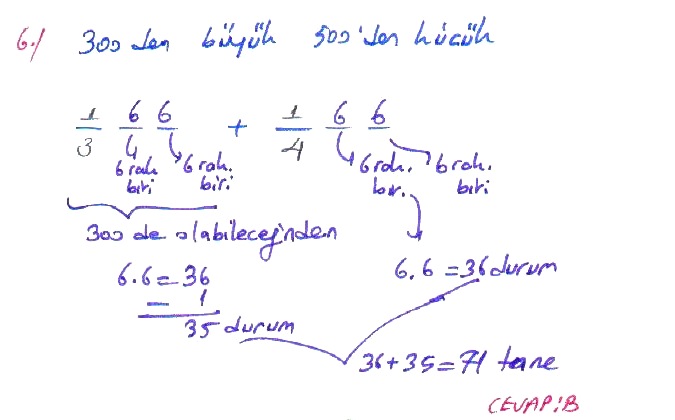 6-) 300 den büyük 500'den küçük
1 6 6 + 1 6 6
3 4
6 rak. biri 6 rak. biri 6 rak. bir. 6 rak. biri
300 de olabileceğinden
6.6=36
- 1
35 durum
6.6=36 durum
36+35=71 tane
CEVAP:B